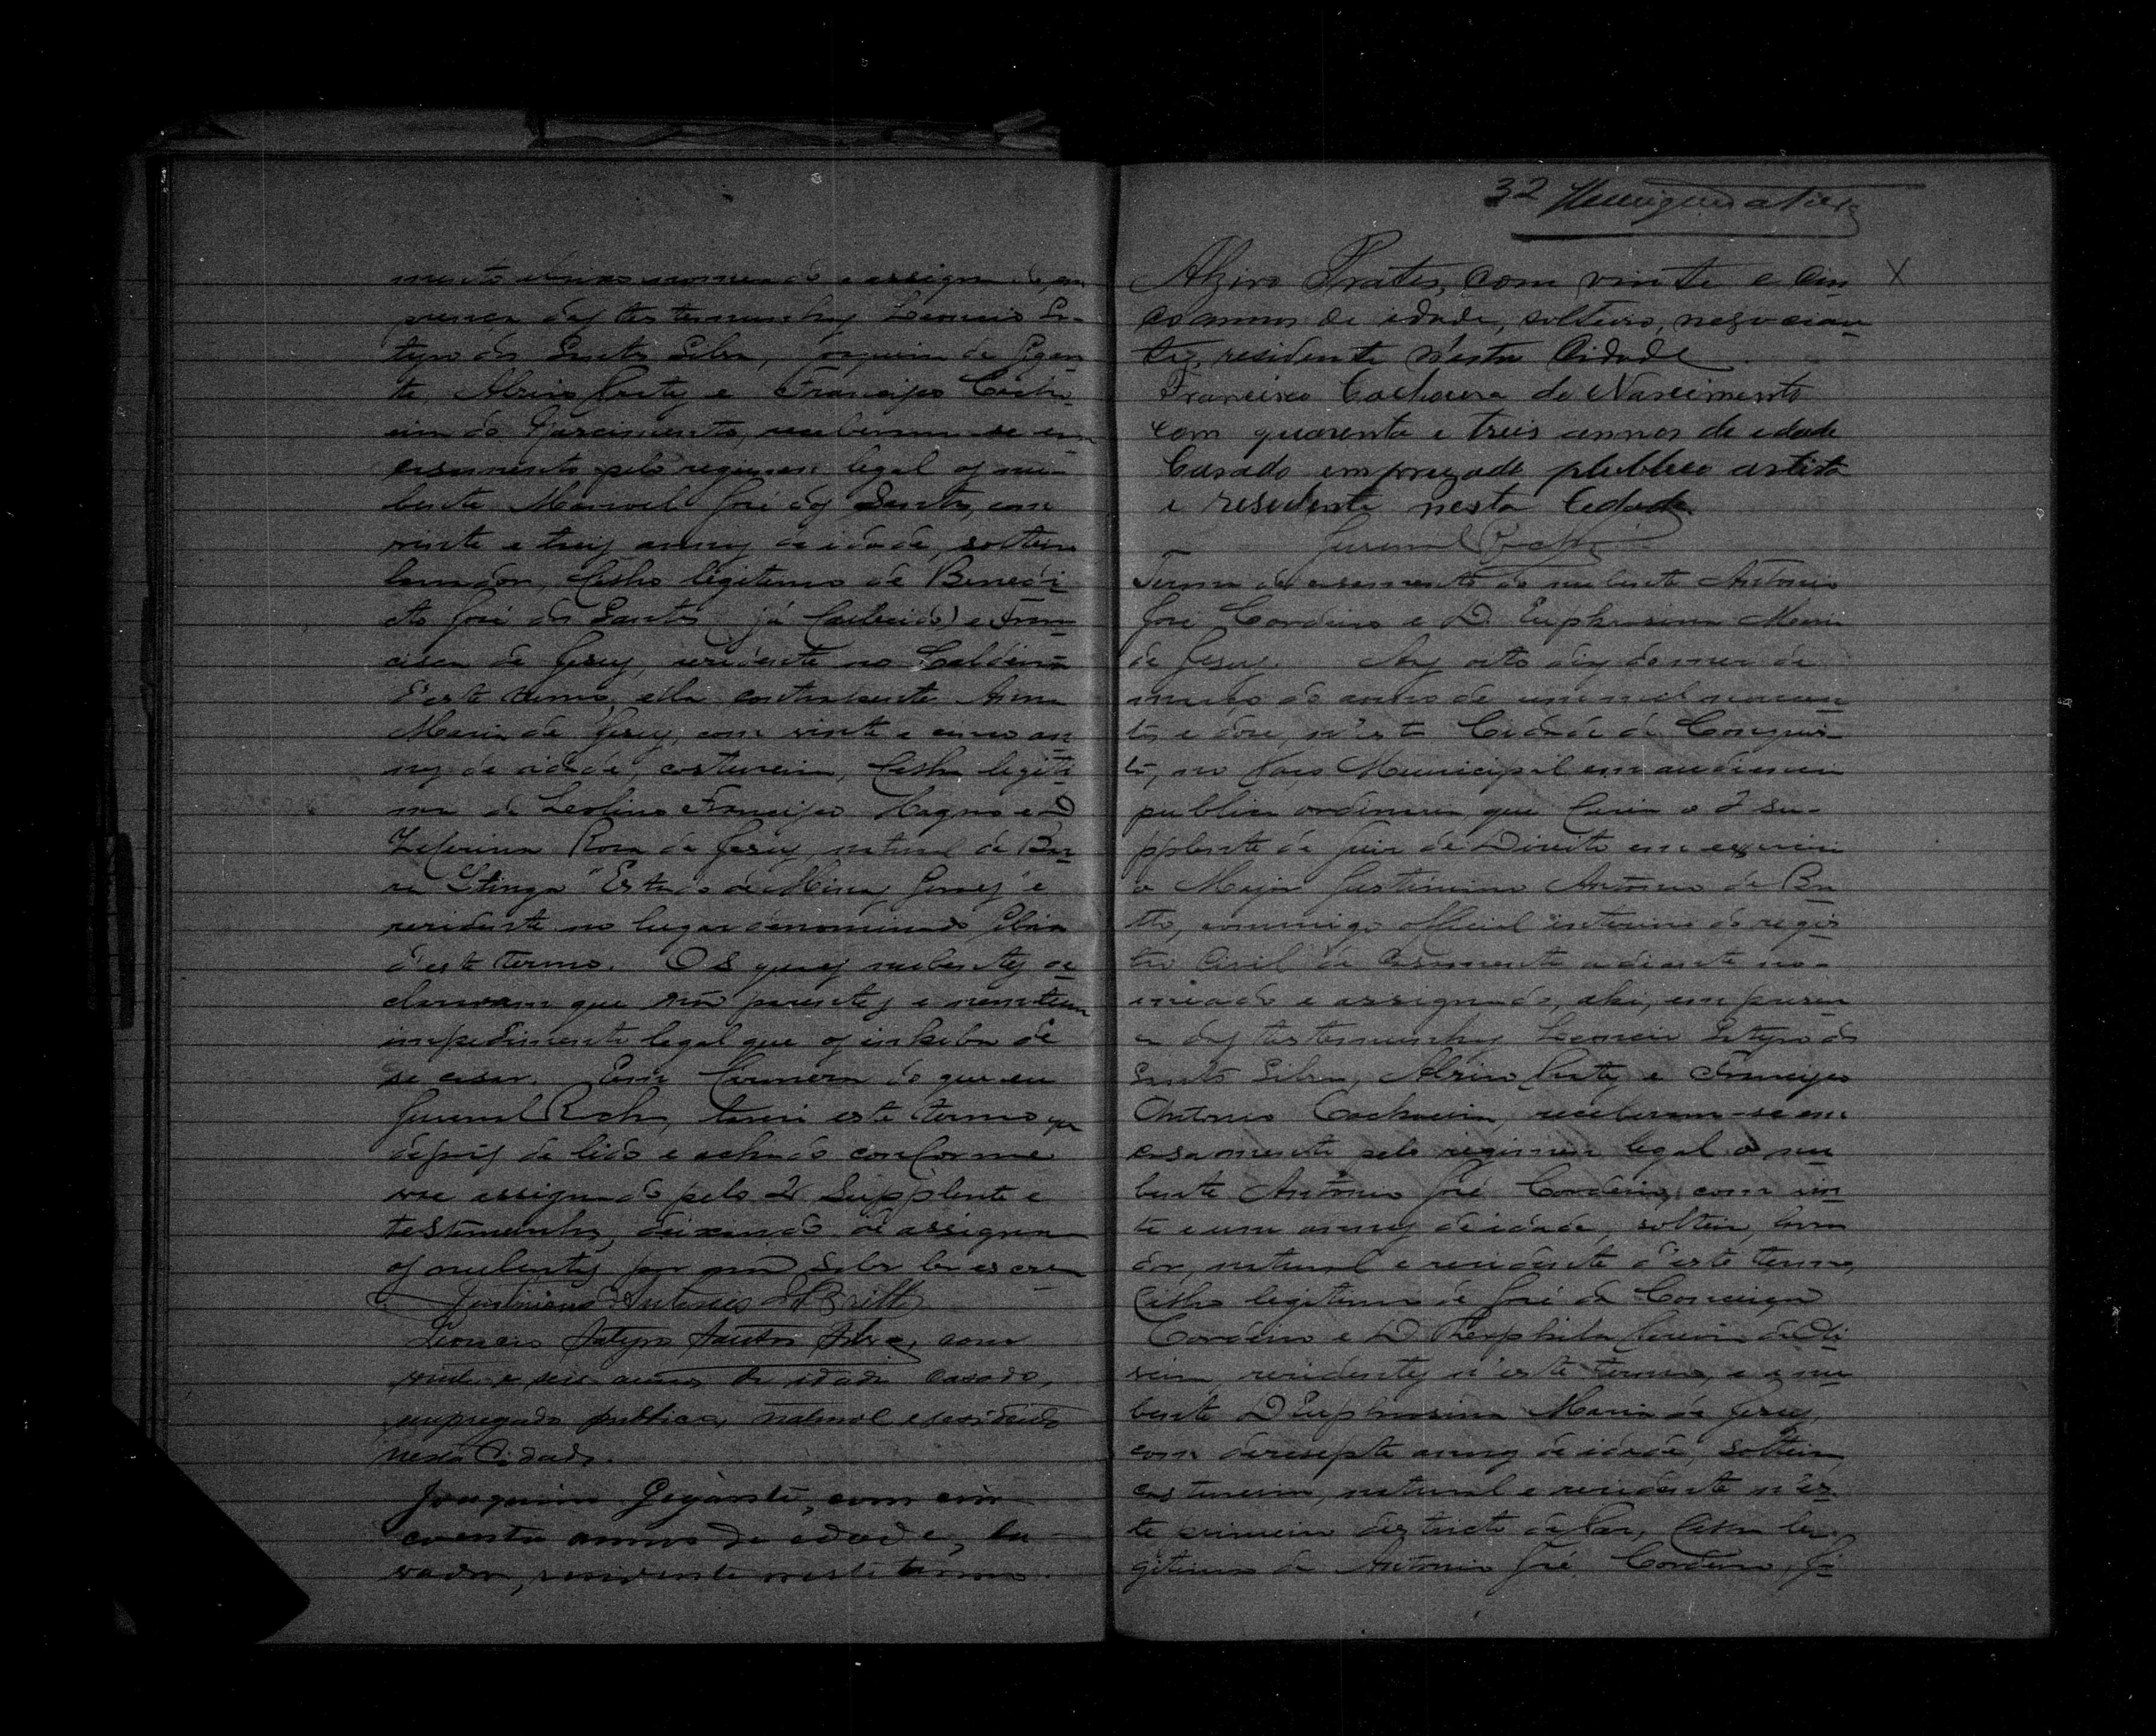 mento abaixo nomeado e assignado, em
presença das testemunhas Leoncio Sa-
tyro dos Santos Silva, Joaquim de Gigan
te, Alziro Prates e Francisco Cacho
eira do Nascimento, receberam-se em
casamento pelo regimen legal os nu-
bente Manoel José dos Santos, com
vinte e treis annos de idade, solteiro
lavrador, filho legitimo de Benedi
cto José dos Santos já fallecido e Fran
cisca de Jesus, residente no
d'este termo, ella contrahente Anna
Maria de Jesus, com vinte e cinco an
nos de idade, costureira, filha legiti
ma de Leolino Francisco Magno e D
Zeferina Rosa de Jesus, natural de
"Estado de Minas Geraes" e
residente no lugar denominado
d'este termo. Os quaes nubentes de
clararam que não parentes e nem tem
impedimento legal que os inhiba de
se casar. Em firmeza do que eu
Juvenal Rocha, lavrei este termo que
depois de lido e achado conforme
vae assignado pelo 2º Supplente e
testemunhas, deixando de assignar
os nubentes por não saber ler escrever
Justiniano Antonio de Britto
Leoncio Satyro Santos Silva, com
vinte e seis annos de idade casado,
empregado publico, natural e residente
nesta Cidade.
Joaquim Gigante, com cin
coenta annos de edade, la
vrador, residente neste termo.
32
Alziro Prates, com vinte e cin
co annos de edade, solteiro, negocian
te, residente n'esta Cidade
Francisco Cachoeira do Nascimento
com quarenta e treis annos de edade
Casado empregado plubleco artista
e resedente nesta Cedade.
Juvenal Rocha
Termo de casamento do nubente Antonio
José Cordeiro e D. Euphrasina Maria
de Jesus. Aos oito dias do mez de
março do anno de um mil novecen
tos e doze, n'esta Cidade de Conquis
ta, no Paço Municipal em audiencia
publica ordinaria que fazia o 2º su-
pplente de Juiz de Direito em exercicio
o Major Justiniano Antonio de Bri
tto, commigo official interino do regis
tro Civil de Casamento adiante no-
meado e assignado, ahi, em presen
ça das testemunhas Leoncio Satyro dos
Santos Silva, Alziro Prates e Francisco
Antonio Cachoeira, receberam-se em
casamento pelo regimen legal o nu
bente Antonio José Cordeiro, com vin
te e um annos de idade, solteiro, lavra
dor, natural e residente d'este termo,
filho legitimo de José da Conceição
Cordeiro e D. Maria de Oli
veira, residentes n'este termo, e a nu
bente D Euphrasina Maria de Jesus,
com deresepte annos de idade, solteira
costureira, natural e residente n'es
te primeiro destricto de Paz, filha le
gitima de Antonio José Cordeiro, já